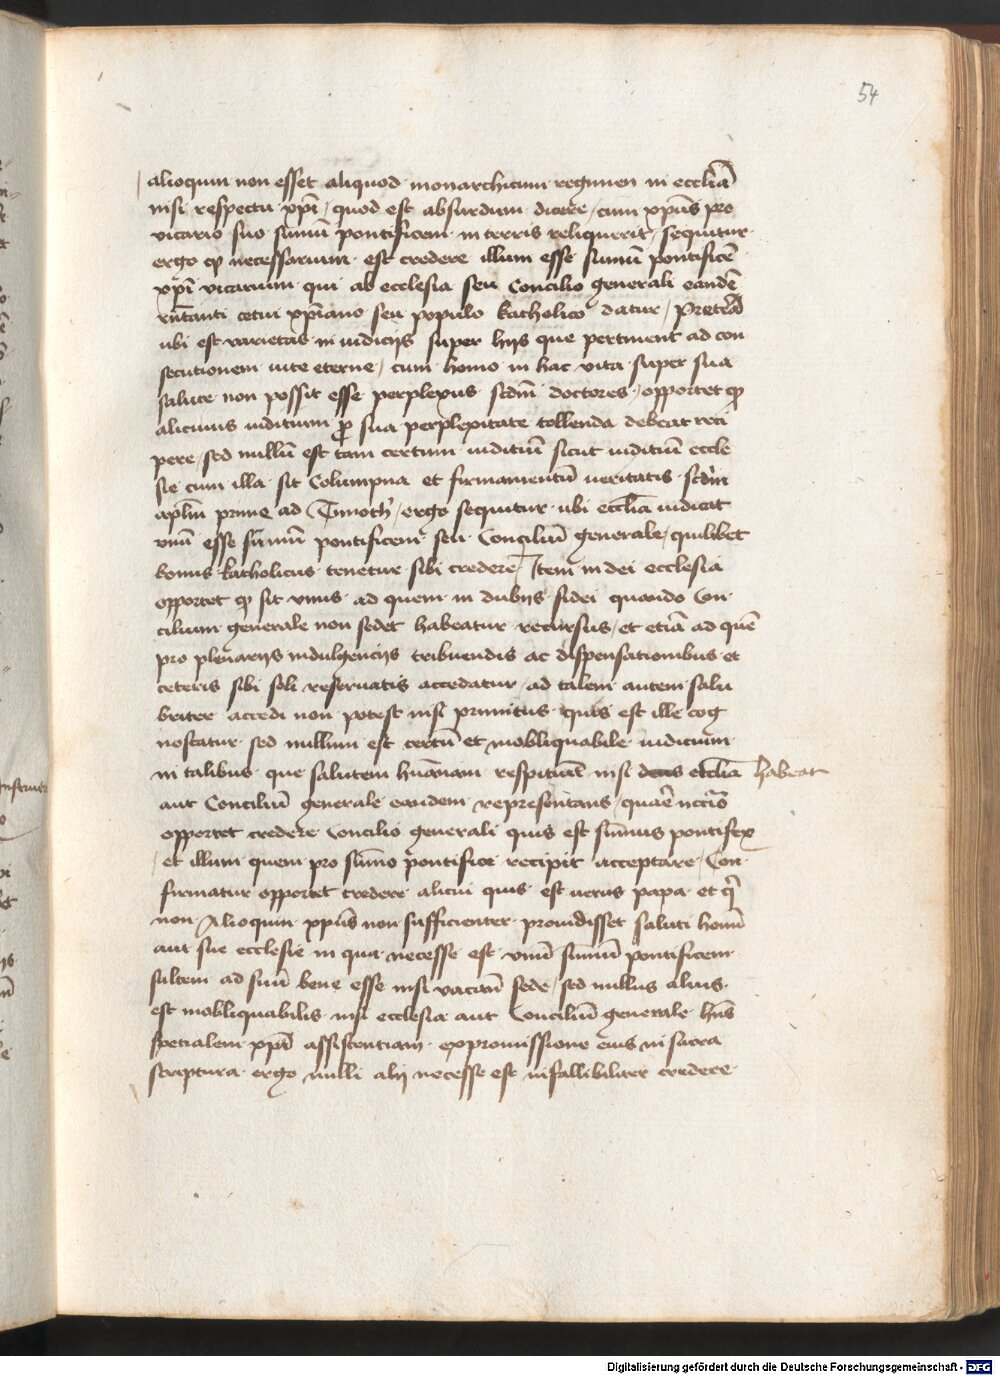 54
alioquin non esset aliquod monarchicum regimen in eccliā
nisi respectu xpī / quod est absurdum dicere / cum xpūs pro
vicario suo sūmū pontificem in terris reliquerit / sequitur
ergo ꝙ necessarium est credere illum esse sūmū pontificē
xpī vicarium qui ab ecclesia seu Concilio generali eandē
rn̄tanti cetui xpīano seu populo katholico datur / Preterea
ubi est varietas in iudicijs super hijs que pertinent ad con
secutionem vite eterne / cum homo in hac vita super sua
salute non possit esse perplexus scdm̄ doctores / opportet ꝙ
alicuius iuditium ꝓ sua perplexitate tollenda debeat reci
pere / sed nullū est tam certum iuditiū sicut iuditiū eccle
sie cum illa sit Columpna et firmamentū veritatis scdm̄
aplm̄ prime ad Timoth' / ergo sequitur ubi eccliā iudicat
vnū esse sūmū pontificem seu Conciliū generale / quilibet
bonus katholicus tenetur sibi credere / Item in dei ecclesia
opportet ꝙ sit vnus ad quem in dubijs fidei quando Con
cilium generale non sedet habeatur recursus / et etiā ad quē
pro plenarijs indulgencijs tribuendis ac dispensationibus et
ceteris sibi soli reseruatis accedatur / ad talem autem salu
briter accedi non potest nisi primitus quis est ille cog
noscatur sed nullum est certū et inobliquabile iudicium
in talibus que salutem hūanam respiciūt nisi eccliā habeat
aut Conciliū generale eandem representans / quare nccio
opportet credere Concilio generali quis est sūmus pontifex
/ et illum quem pro sūmo pontifice recipit acceptare / Con
firmatur opportet credere alicui quis est verus papa et qs
non Alioquin xpūs non sufficienter prouidisset saluti homū
aut sue ecclesie in qua necesse est vnū sūmū pontificem
saltem ad suū bene esse nisi vacāt sede / sed nullus alius
est inobliquabilis nisi ecclesia aut Conciliū generale hn̄s
specialem xpī assistentiam expromissione eius in sacra
scriptura ergo nulli alij necesse est infallibiliter credere
Digitalisierung gefördert durch die Deutsche Forschungsgemeinschaft - DFG